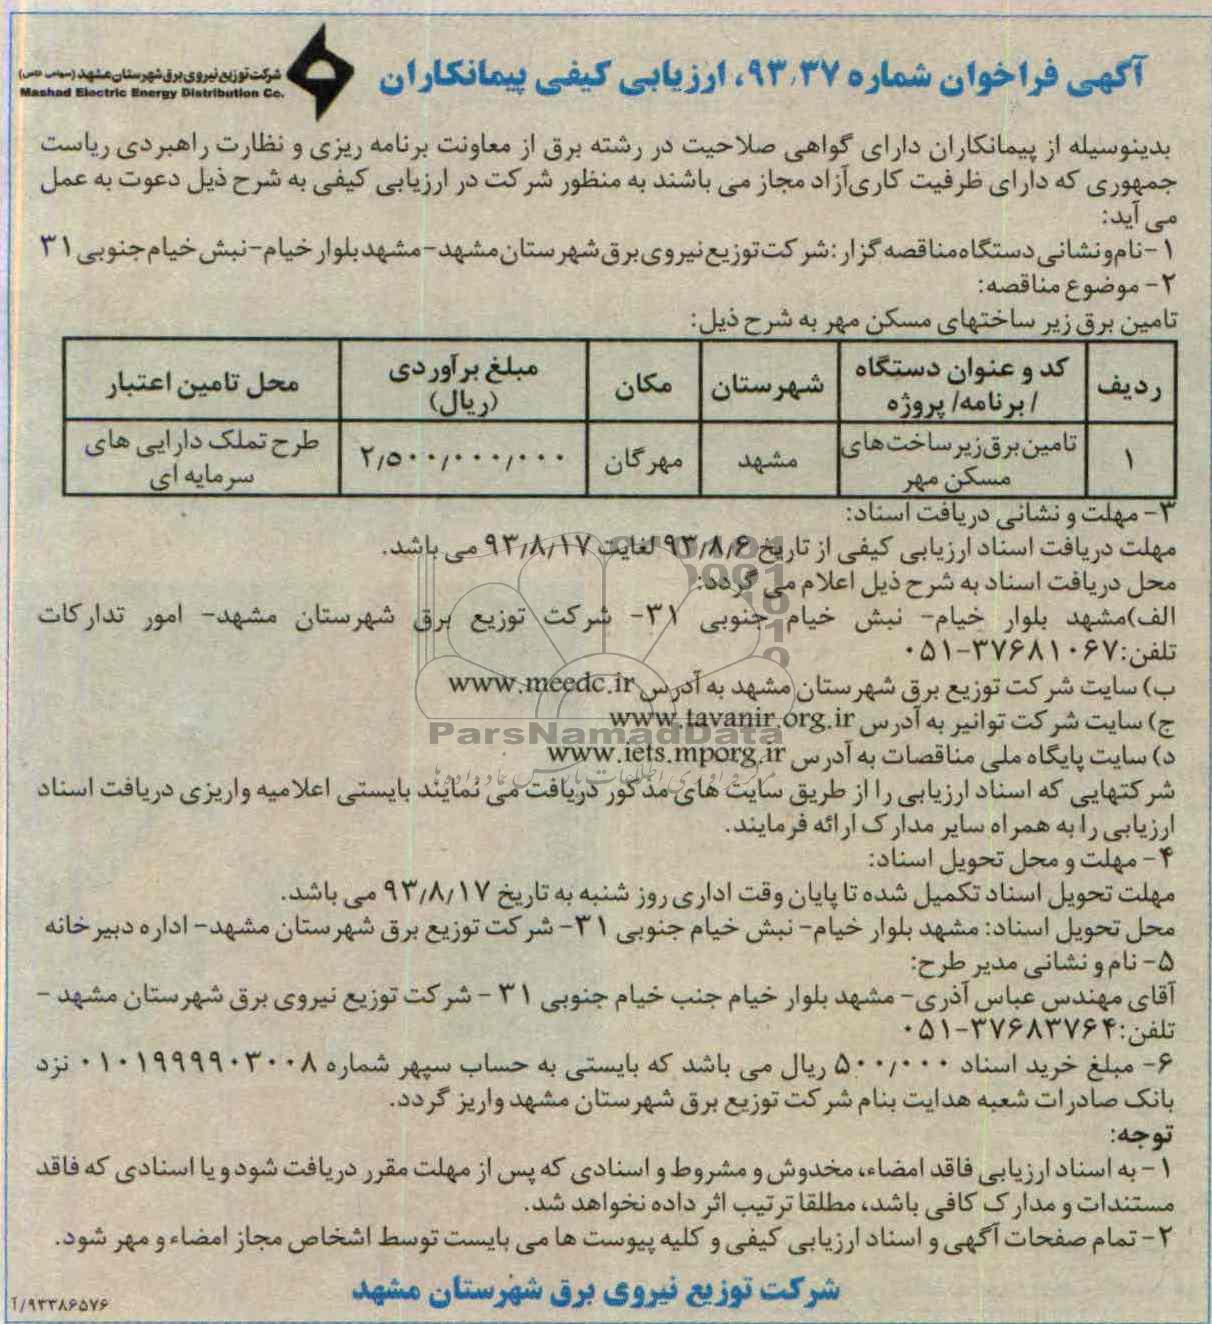 آگهی فراخوان شماره ۹۳.۳۷، ارزیابی کیفی پیمانکاران
شرکت توزیع نیروی برق شهرستان مشهد (سهامی خاص)
Mashad Electric Energy Distribution Co.
بدینوسیله از پیمانکاران دارای گواهی صلاحیت در رشته برق از معاونت برنامه ریزی و نظارت راهبردی ریاست
جمهوری که دارای ظرفیت کاری آزاد مجاز می باشند به منظور شرکت در ارزیابی کیفی به شرح ذیل دعوت به عمل
می آید:
۱- نام و نشانی دستگاه مناقصه گزار: شرکت توزیع نیروی برق شهرستان مشهد- مشهد بلوار خیام- نبش خیام جنوبی ۳۱
۲- موضوع مناقصه:
تامین برق زیر ساختهای مسکن مهر به شرح ذیل:
ردیف | کد و عنوان دستگاه / برنامه/ پروژه | شهرستان | مکان | مبلغ برآوردی (ریال) | محل تامین اعتبار
۱ | تامین برق زیرساخت های مسکن مهر | مشهد | مهرگان | ۲/۵۰۰/۰۰۰/۰۰۰ | طرح تملک دارایی های سرمایه ای
۳- مهلت و نشانی دریافت اسناد:
مهلت دریافت اسناد ارزیابی کیفی از تاریخ ۹۳/۸/۶ لغایت ۹۳/۸/۱۷ می باشد.
محل دریافت اسناد به شرح ذیل اعلام می گردد:
الف)مشهد بلوار خیام- نبش خیام جنوبی ۳۱- شرکت توزیع برق شهرستان مشهد- امور تدارکات
تلفن:۳۷۶۸۱۰۶۷-۰۵۱
ب) سایت شرکت توزیع برق شهرستان مشهد به آدرس www.meedc.ir
ج) سایت شرکت توانیر به آدرس www.tavanir.org.ir
ParsNamadData
د) سایت پایگاه ملی مناقصات به آدرس www.iets.mporg.ir
مرکز فرآوری اطلاعات پارس نماد داده ها
شرکتهایی که اسناد ارزیابی را از طریق سایت های مذکور دریافت می نمایند بایستی اعلامیه واریزی دریافت اسناد
ارزیابی را به همراه سایر مدارک ارائه فرمایند.
۴- مهلت و محل تحویل اسناد:
مهلت تحویل اسناد تکمیل شده تا پایان وقت اداری روز شنبه به تاریخ ۹۳/۸/۱۷ می باشد.
محل تحویل اسناد: مشهد بلوار خیام- نبش خیام جنوبی ۳۱- شرکت توزیع برق شهرستان مشهد- اداره دبیرخانه
۵- نام و نشانی مدیر طرح:
آقای مهندس عباس آذری- مشهد بلوار خیام جنب خیام جنوبی ۳۱ - شرکت توزیع نیروی برق شهرستان مشهد -
تلفن:۳۷۶۸۳۷۶۴-۰۵۱
۶- مبلغ خرید اسناد ۵۰۰/۰۰۰ ریال می باشد که بایستی به حساب سپهر شماره ۰۱۰۱۹۹۹۹۰۳۰۰۸ نزد
بانک صادرات شعبه هدایت بنام شرکت توزیع برق شهرستان مشهد واریز گردد.
توجه:
۱- به اسناد ارزیابی فاقد امضاء، مخدوش و مشروط و اسنادی که پس از مهلت مقرر دریافت شود و یا اسنادی که فاقد
مستندات و مدارک کافی باشد، مطلقا ترتیب اثر داده نخواهد شد.
۲- تمام صفحات آگهی و اسناد ارزیابی کیفی و کلیه پیوست ها می بایست توسط اشخاص مجاز امضاء و مهر شود.
شرکت توزیع نیروی برق شهرستان مشهد
۹۳۳۸۶۵۷۶/آ